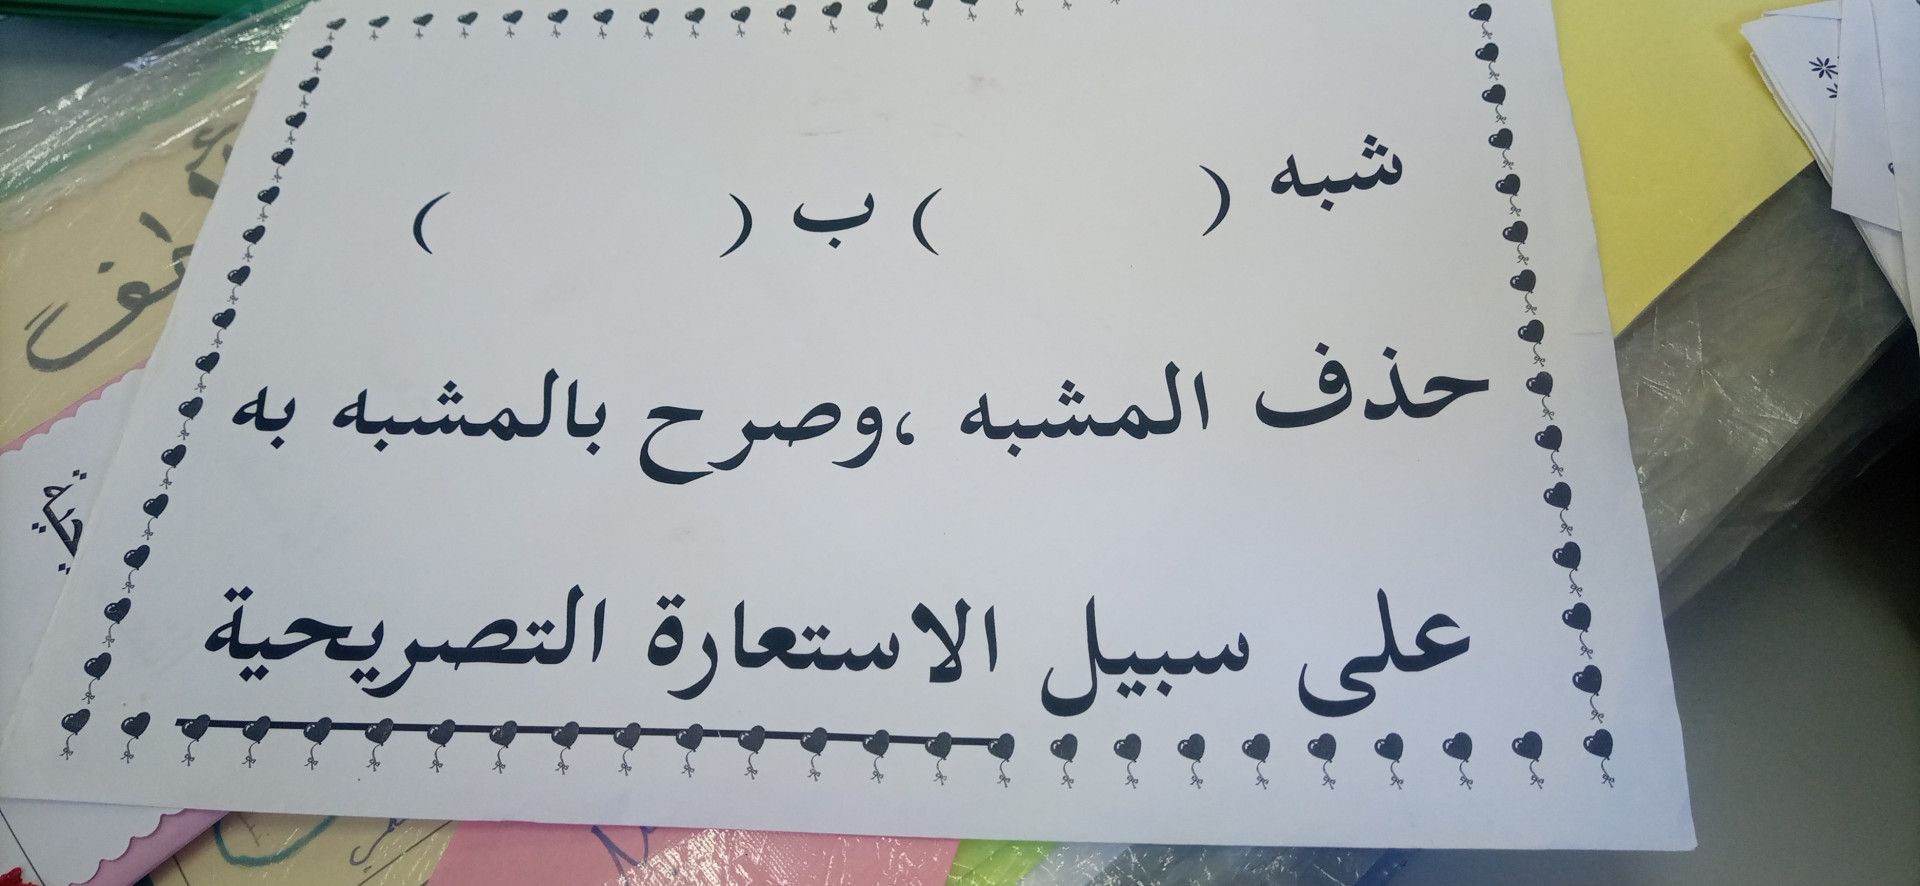 شبه (          ) ب (          )
حذف المشبه ،وصرح بالمشبه به
على سبيل الاستعارة التصريحية